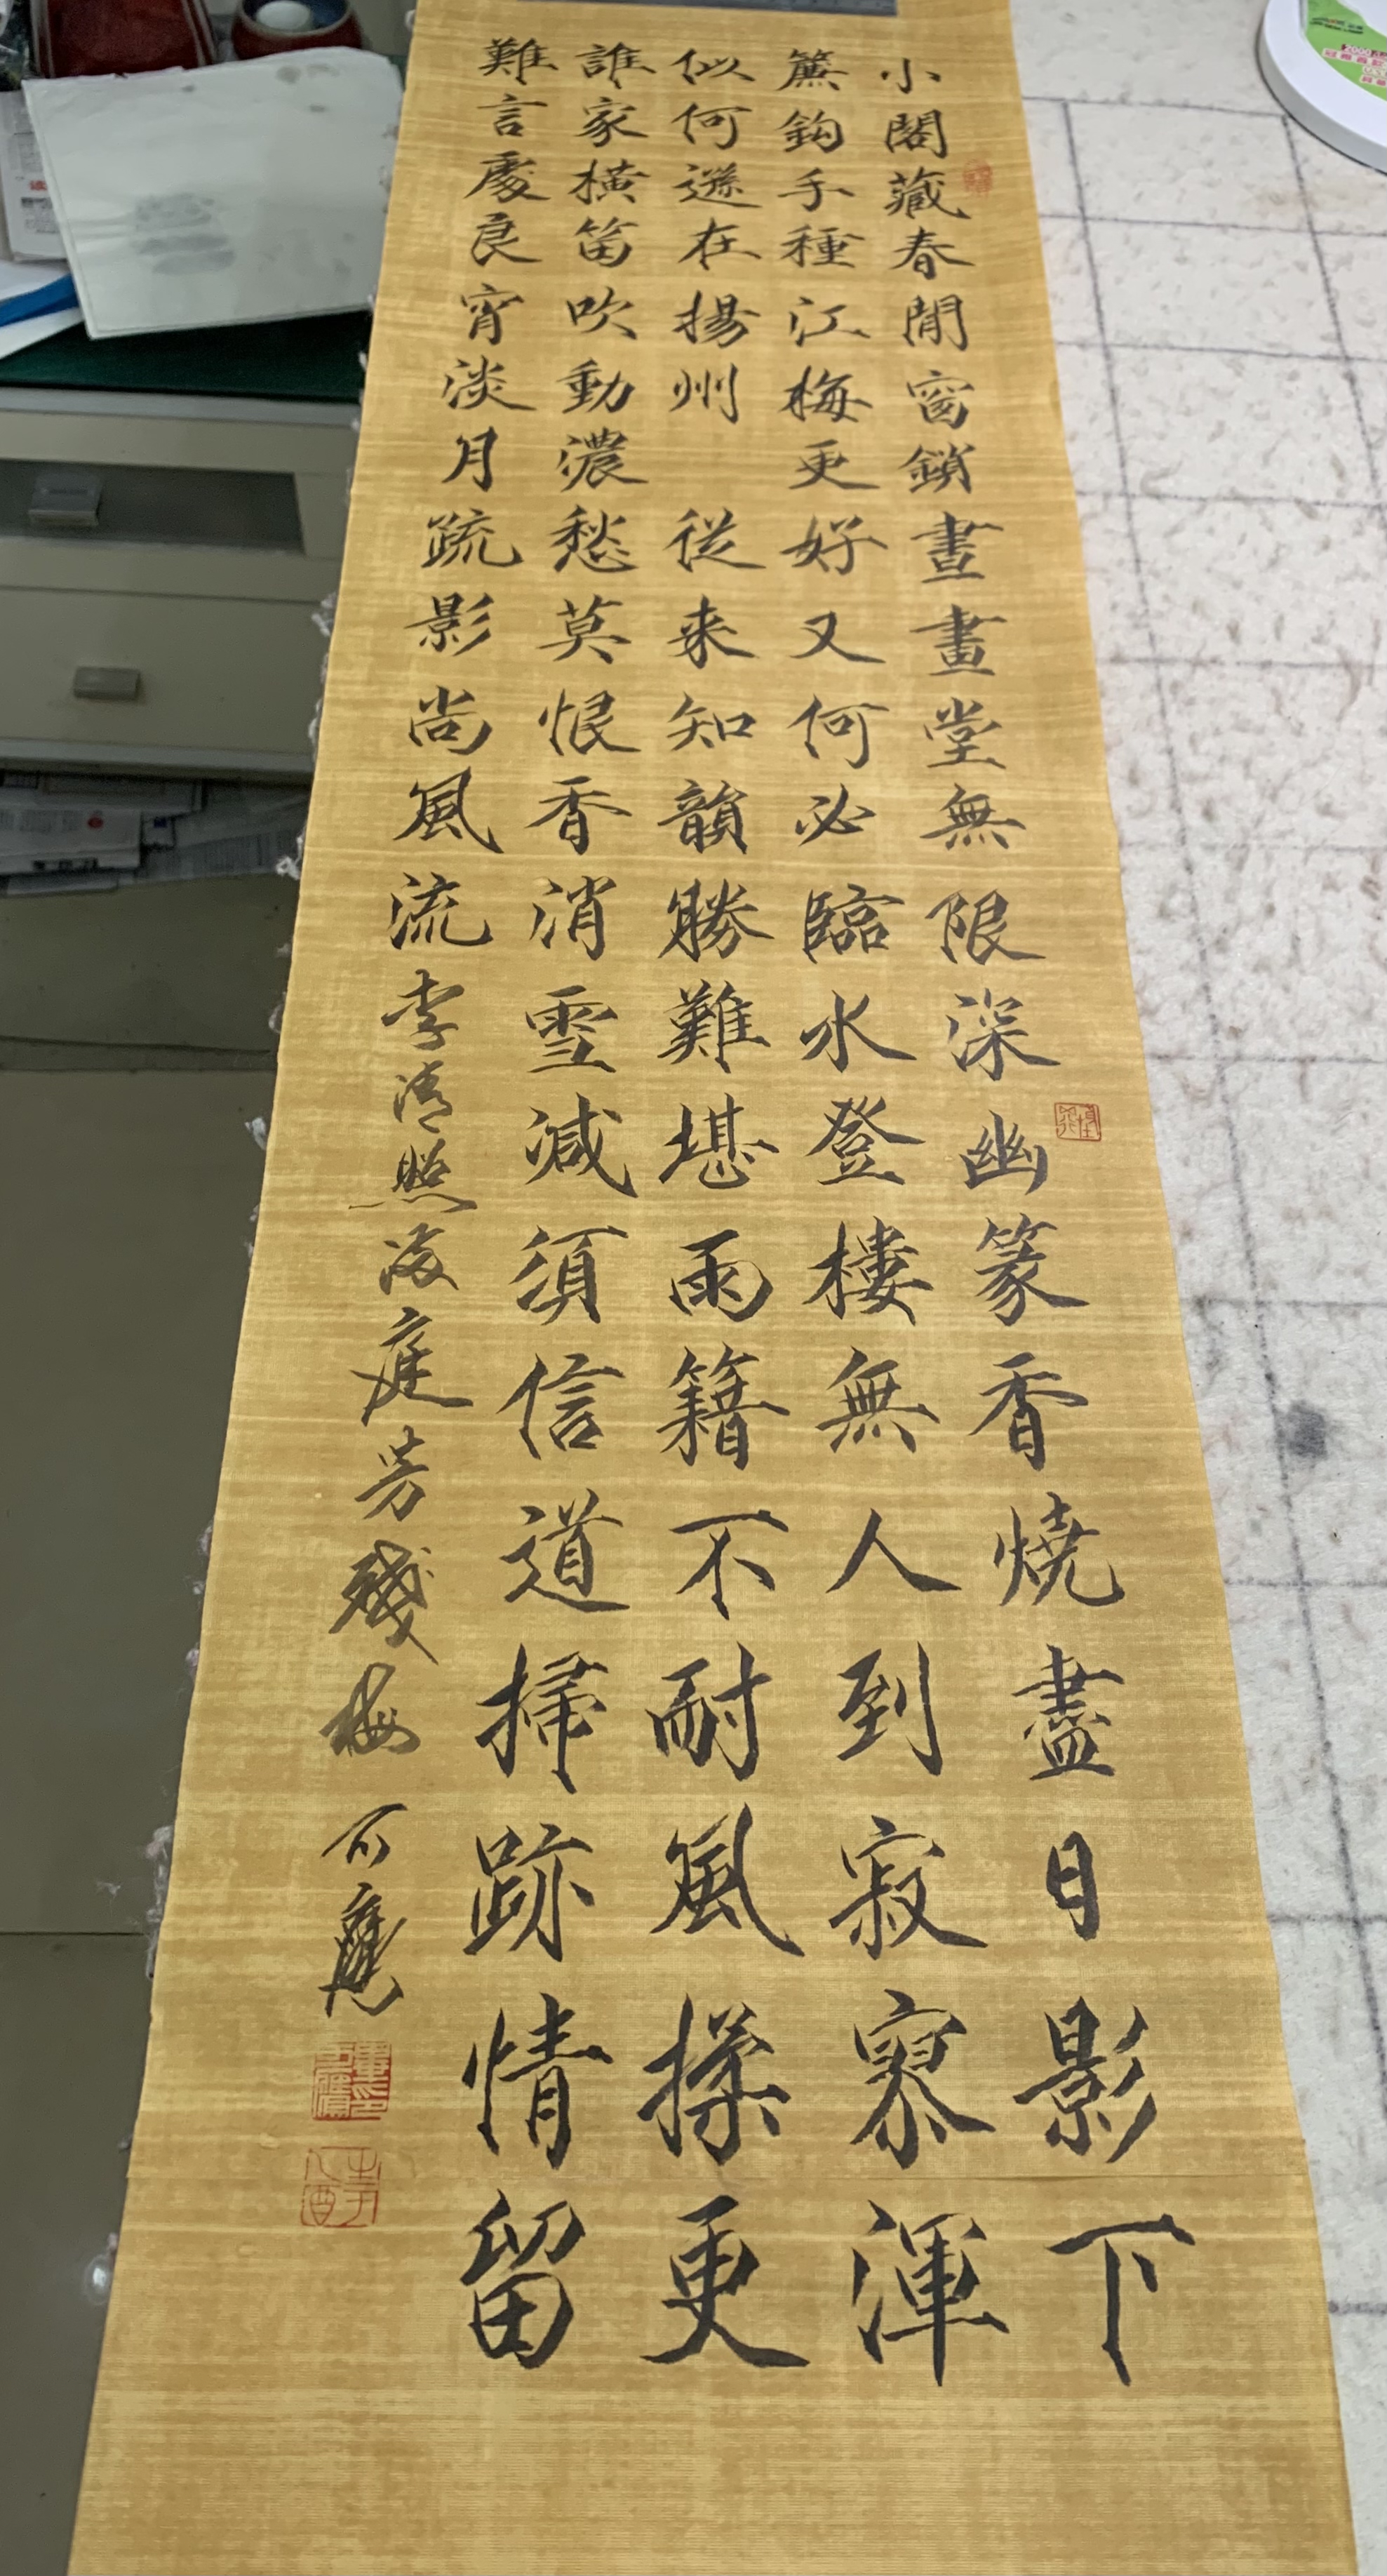 小閣藏春閒窗鎖晝畫堂無限深幽篆香燒盡日影下
簾鈎手種江梅更好又何必臨水登樓無人到寂寥渾
似何遜在揚州 從来知韻勝難堪雨籍不耐風揉更
誰家橫笛吹動濃愁莫恨香消雪減須信道掃跡情留
難言處良宵淡月疏影尚風流李清照滿庭芳殘梅